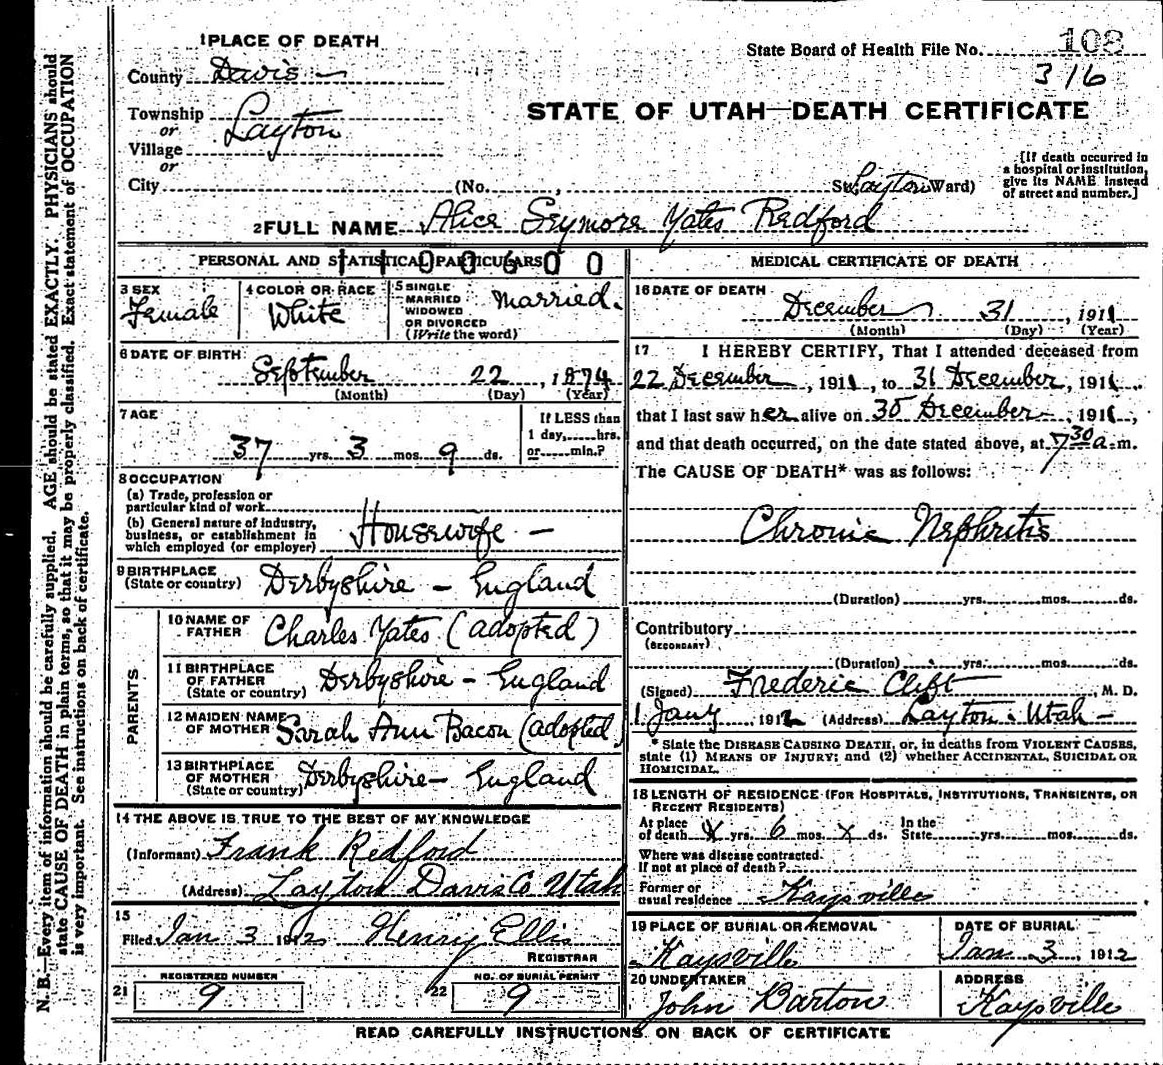 N. B.—Every item of information should be carefully supplied. AGE should be stated EXACTLY. PHYSICIANS should
state CAUSE OF DEATH in plain terms, so that it may be properly classified. Exact statement of OCCUPATION
is very important. See instructions on back of certificate.
1 PLACE OF DEATH
State Board of Health File No. 108
316
County Davis
STATE OF UTAH—DEATH CERTIFICATE
Township
or Layton
Village
or
City (No. , St. Layton Ward)
[If death occurred in
a hospital or institution,
give its NAME instead
of street and number.]
2 FULL NAME Alice Seymore Yates Redford
PERSONAL AND STATISTICAL PARTICULARS
1100600
3 SEX
Female
4 COLOR OR RACE
White
5 SINGLE
MARRIED
WIDOWED
OR DIVORCED
(Write the word)
Married.
6 DATE OF BIRTH
September 22, 1874
(Month) (Day) (Year)
7 AGE
37 yrs. 3 mos. 9 ds.
If LESS than
1 day, hrs.
or min.?
8 OCCUPATION
(a) Trade, profession or
particular kind of work
(b) General nature of industry,
business, or establishment in
which employed (or employer)
Housewife —
9 BIRTHPLACE
(State or country) Derbyshire — England
PARENTS
10 NAME OF
FATHER Charles Yates (adopted)
11 BIRTHPLACE
OF FATHER
(State or country) Derbyshire — England
12 MAIDEN NAME
OF MOTHER Sarah Ann Bacon (adopted)
13 BIRTHPLACE
OF MOTHER
(State or country) Derbyshire — England
14 THE ABOVE IS TRUE TO THE BEST OF MY KNOWLEDGE
(Informant) Frank Redford
(Address) Layton Davis Co Utah
15
Filed Jan 3 1912 Henry Ellis
REGISTRAR
REGISTERED NUMBER
21 9
NO. OF BURIAL PERMIT
22 9
MEDICAL CERTIFICATE OF DEATH
16 DATE OF DEATH
December 31, 1911
(Month) (Day) (Year)
17 I HEREBY CERTIFY, That I attended deceased from
22 December, 1911, to 31 December, 1911,
that I last saw her alive on 30 December, 1911,
and that death occurred, on the date stated above, at 7 30 a. m.
The CAUSE OF DEATH* was as follows:
Chronic Nephritis
(Duration) yrs. mos. ds.
Contributory
(SECONDARY)
(Duration) yrs. mos. ds.
(Signed) Frederic Clift, M. D.
1 Jany, 1912 (Address) Layton Utah —
* State the DISEASE CAUSING DEATH, or, in deaths from VIOLENT CAUSES,
state (1) MEANS OF INJURY; and (2) whether ACCIDENTAL, SUICIDAL OR
HOMICIDAL.
18 LENGTH OF RESIDENCE (FOR HOSPITALS, INSTITUTIONS, TRANSIENTS, OR
RECENT RESIDENTS)
At place
of death x yrs. 6 mos. x ds.
In the
State yrs. mos. ds.
Where was disease contracted.
If not at place of death?
Former or
usual residence Kaysville
19 PLACE OF BURIAL OR REMOVAL
Kaysville
DATE OF BURIAL
Jan 3, 1912
20 UNDERTAKER
John Barton
ADDRESS
Kaysville
READ CAREFULLY INSTRUCTIONS ON BACK OF CERTIFICATE